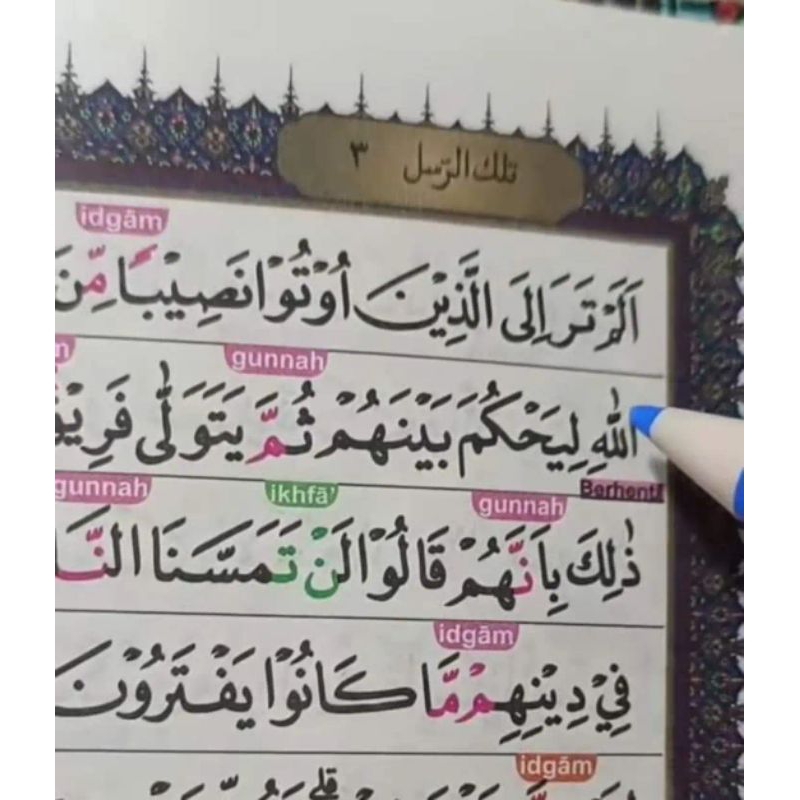 تلك الرّسل ٣
idgām
اَلَمْ تَرَ اِلَى الَّذِيْنَ اُوْتُوْا نَصِيْبًا مِّنَ
gunnah
اللّٰهِ لِيَحْكُمَ بَيْنَهُمْ ثُمَّ يَتَوَلّٰى
Berhenti
gunnah ikhfā' gunnah
ذٰلِكَ بِاَنَّهُمْ قَالُوْا لَنْ تَمَسَّنَا
idgām
فِيْ دِيْنِهِمْ مَّا كَانُوْا يَفْتَرُوْنَ
idgām
قلى